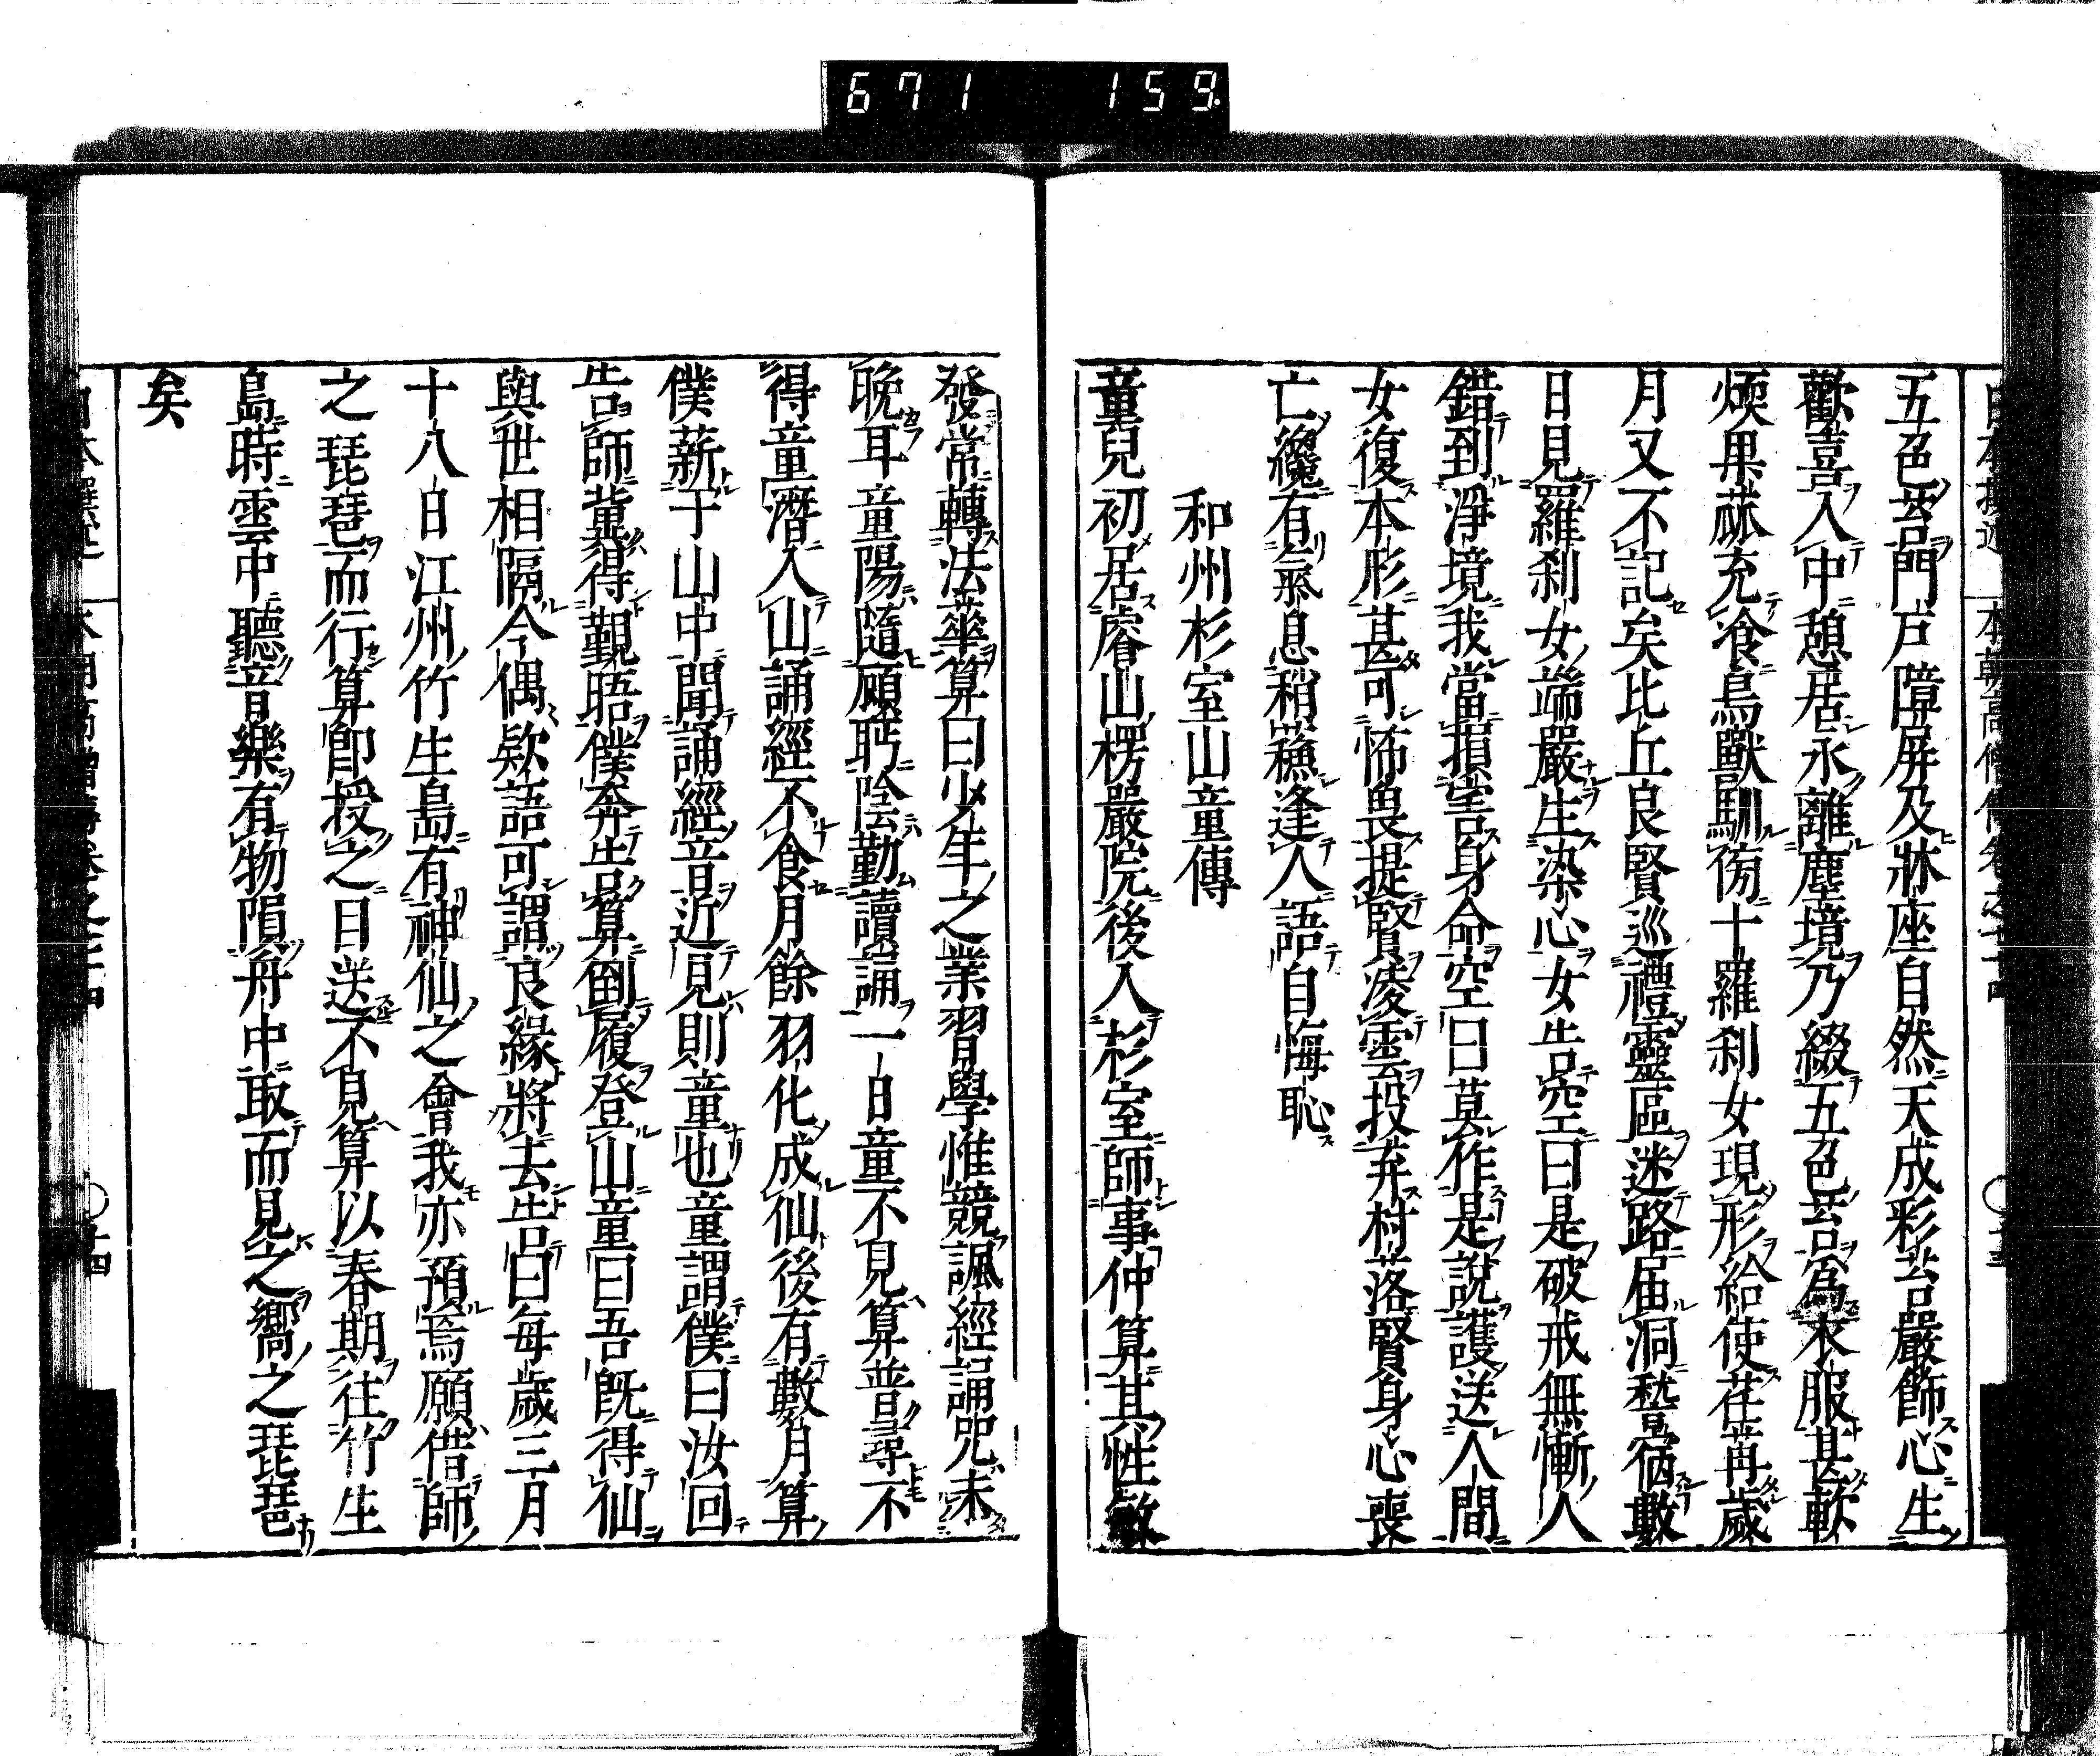 671 159
五色苔門戸障屏及牀座自然天成彩苔嚴飾心生
歡喜入中憩居永離塵境乃綴五色苔爲衣服甚軟
煗果蓏充飡鳥獸馴傍十羅刹女現形給使荏苒歲
月又不記矣比丘良賢巡禮靈區迷路届洞蹔宿數
日見羅刹女端嚴生染心女告空曰是破戒無慚人
錯到淨境我當損害身命空曰莫作是說護送人間
女復本形甚可怖畏提賢凌雲投弃村落賢身心喪
亡纔有氣息稍蘓逢人語自悔恥
和州杉室山童傳
童兒初居㟁山楞嚴院後入杉室師事仲算其性敏
發常轉法華算曰少年之業習學惟競諷經誦咒末
晚耳童陽隨顧眄陰勤讀誦一日童不見算普尋不
得童潛入山誦經不食月餘羽化成仙後有數月算
僕薪于山中聞誦經音近見則童也童謂僕曰汝回
告師冀得覲晤僕奔告算倒履登山童曰吾既得仙
與世相隔今偶欵語可謂良緣將去告曰每歲三月
十八日江州竹生島有神仙之會我亦預焉願借師
之琵琶而行算即授之目送不見算以春期往竹生
島時雲中聽音樂有物隕舟中取而見之嚮之琵琶
矣